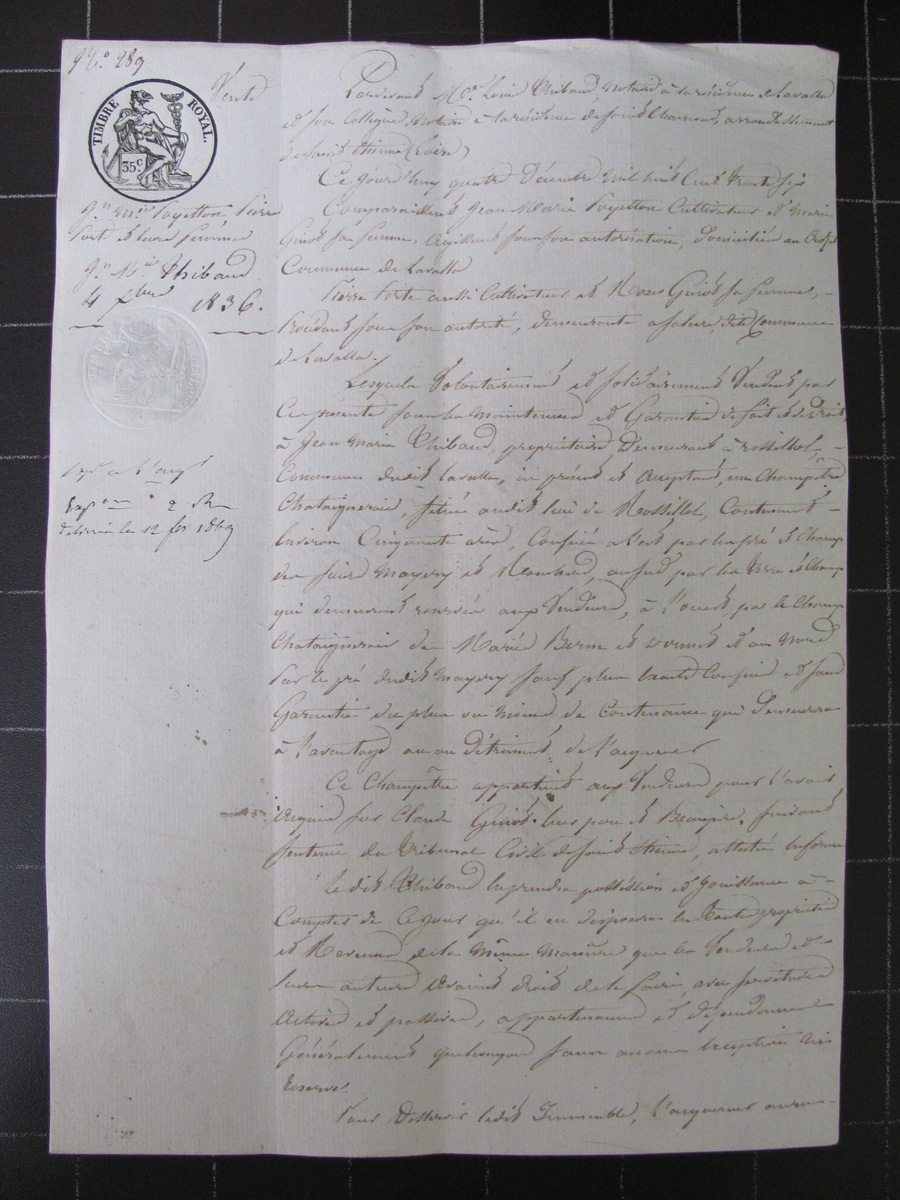 N.o 289
TIMBRE ROYAL.
35 c
Vente
Jn Mie Poyetton Pierre
Porte & leurs femmes
Jn Mie Thibaud
4 Xbre 1836.
Expon 2 R
délivrée le 12 fer 1869
Pardevant Me Louis Thibaud notaire à la résidence de Lavalla
et son collègue, notaire à la résidence de Saint Chamond, arrondissement
de Saint Etienne (Loire)
Ce jourd'huy quatre Décembre mil huit Cent trente six
Comparaissent Jean Marie Poyetton Cultivateur et Marie
Ginot sa femme, agissant sous son autorisation, domiciliés au
Commune de Lavalla
Pierre Porte aussi Cultivateur et Ginot sa femme,
procédant sous son autorité, demeurants dite Commune
de Lavalla.
Lesquels Volontairement et solidairement Vendent par
Ces présentes sous la maintenue et Garantie de fait et de Droit,
à Jean Marie Thibaud, propriétaire Demeurant à Rossillol
Commune dudit Lavalla, ici présent et acceptant, un Champêtre
Chataignerais, situé audit lieu de Rossillol, Contenant
Environ Cinquante ares, Confiné à l'est par les pré et Champ
des sieurs Mayery et au sud par les terre et Champ
qui demeurent réservés aux Vendeurs, à l'ouest par le Champ
Chataignerais des Mariés Berne et et au nord
par le pré dudit Mayery sauf plus exacts Confins et sans
Garantie du plus ou moins de Contenance qui demeurera
à l'avantage ou au détriment de l'acquéreur
Ce Champêtre appartient aux Vendeurs pour l'avoir
acquis sur Claude Ginot leur père et Beaupère, suivant
sentence du Tribunal Civil de Saint Etienne, en forme
Le dit Thibaud en prendra possession et jouissance à
Compter de Ce jour qu'il en disposera en toute propriété
et Revenus de la Même Manière que les Vendeurs et
leurs auteurs avaient droit de le faire avec servitudes
actives et passives, appartenances et dépendances
Généralement quelconques sans aucune exception ni
Réserve.
Pour Desservir ledit Immeuble, l'acquéreur aura